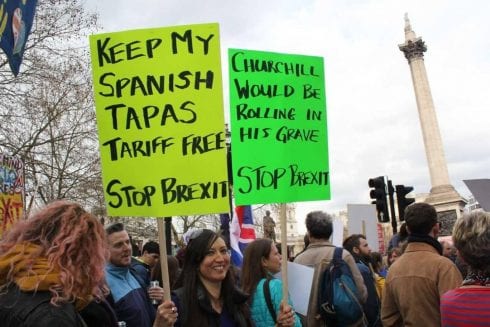 KEEP MY
SPANISH
TAPAS
TARIFF FREE
STOP BREXIT
CHURCHILL
WOULD BE
ROLLING IN
HIS GRAVE
STOP BREXIT